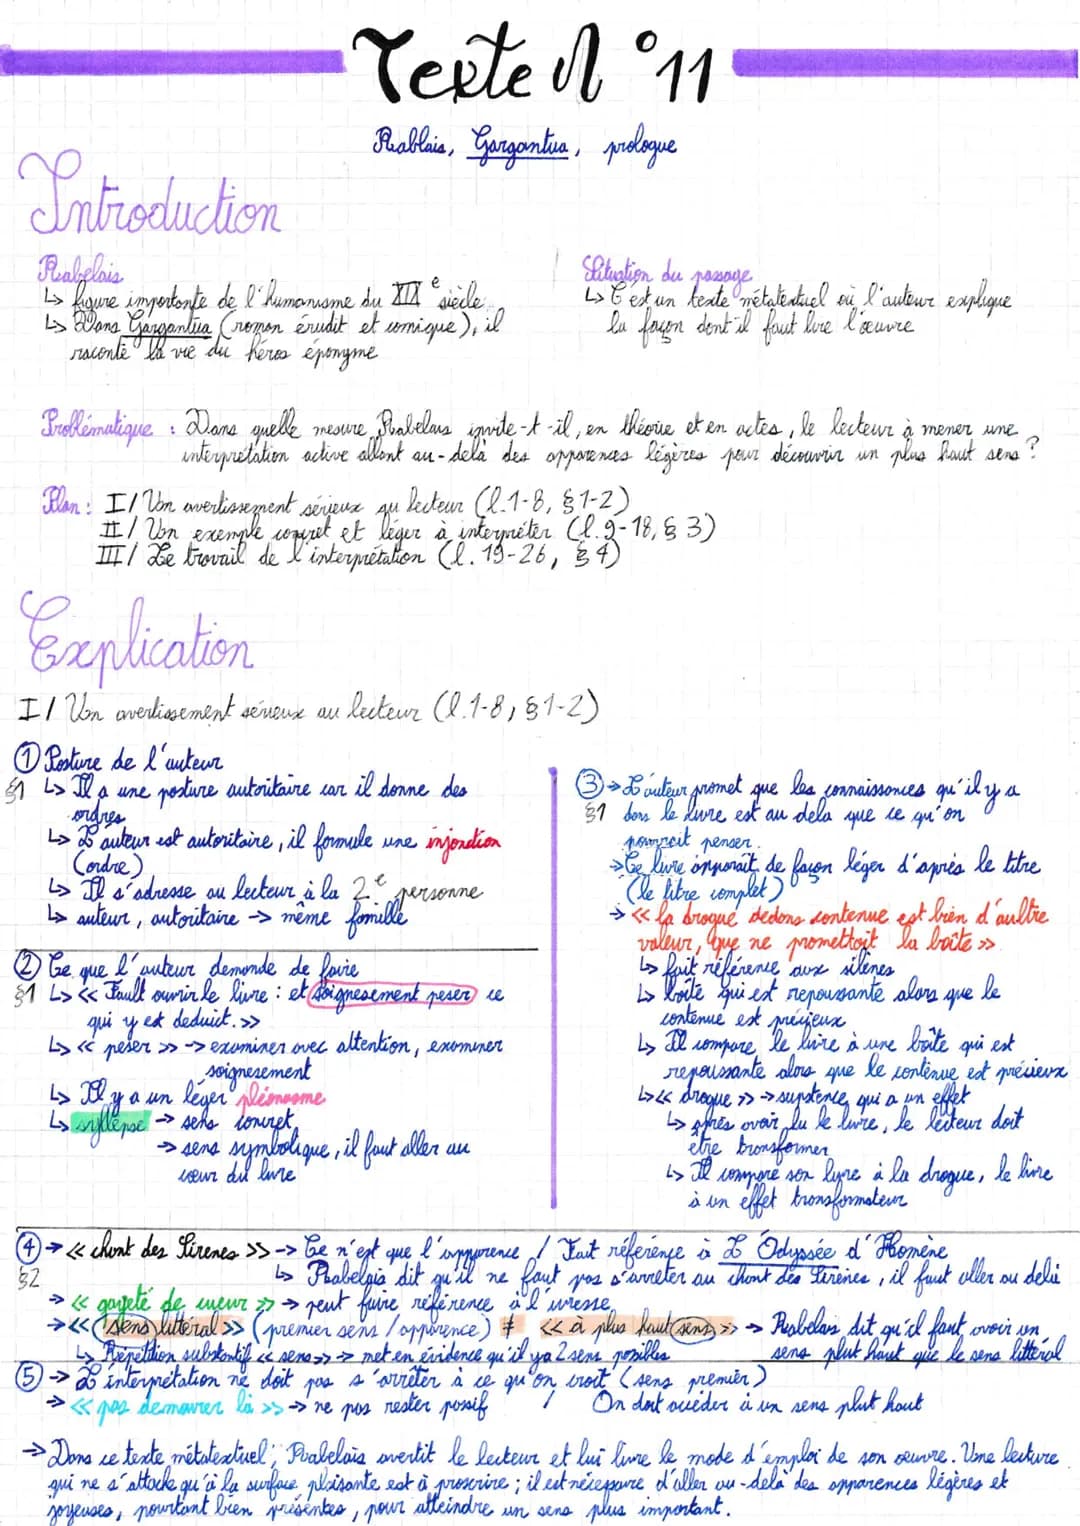 Texte N°11
Rablais, Gargantua, prologue
Introduction
Rabelais
↳ figure importante de l'humanisme du XVIe siècle
↳ Dans Gargantua (roman érudit et comique), il
raconte la vie du héros éponyme
Situation du passage
↳ C'est un texte métatextuel où l'auteur explique
la façon dont il faut lire l'œuvre
Problématique : Dans quelle mesure Rabelais invite-t-il, en théorie et en actes, le lecteur à mener une
interprétation active allant au-delà des apparences légères pour découvrir un plus haut sens ?
Plan : I/ Un avertissement sérieux au lecteur (l.1-8, §1-2)
II/ Un exemple concret et léger à interpréter (l.9-18, § 3)
III/ Le travail de l'interprétation (l. 19-26, § 4)
Explication
I/ Un avertissement sérieux au lecteur (l.1-8, §1-2)
① Posture de l'auteur
§1 ↳ Il a une posture autoritaire car il donne des
ordres
↳ L'auteur est autoritaire, il formule une injonction
(ordre)
↳ Il s'adresse au lecteur à la 2e personne
↳ auteur, autoritaire → même famille
② Ce que l'auteur demande de faire
§1 ↳ << Fault ouvrir le livre : et soignesement peser ce
qui y est deduict. >>
↳ << peser >> → examiner avec attention, examiner
soignesement
↳ Il y a un léger pléonasme
↳ syllepse → sens concret
→ sens symbolique, il faut aller au
cœur du livre
③ → L'auteur promet que les connaissances qu'il y a
§1 dans le livre est au dela que ce qu'on
pourrait penser.
→ Ce livre apparaît de façon léger d'après le titre
(le titre complet)
→ << la drogue dedans contenue est bien d'aultre
valeur, que ne promettoit la boîte >>
↳ fait référence aux silènes
↳ boîte qui est repoussante alors que le
contenue est précieux
↳ Il compare le livre à une boîte qui est
repoussante alors que le contenue est précieux
↳ << drogue >> → substence qui a un effet
↳ après avoir lu le livre, le lecteur doit
être transformer
↳ Il compare son livre à la drogue, le livre
à un effet transformateur
④ → << chant des Sirenes >> → Ce n'est que l'apparence / Fait référence à L'Odyssée d'Homène
§2 ↳ Rabelais dit qu'il ne faut pas s'arrêter au chant des sirènes, il faut aller au delà
→ << gayeté de cueur >> → peut faire référence à l'ivresse
→ << sens littéral >> (premier sens / apparence) ≠ << à plus haut sens >> → Rabelais dit qu'il faut avoir un
sens plut haut que le sens littéral
↳ Répétition substantif << sens >> → met en évidence qu'il y a 2 sens possibles
⑤ → L'interprétation ne doit pas s'arrêter à ce qu'on croit (sens premier)
→ << pas demourer là >> → ne pas rester passif / On doit accéder à un sens plut haut
→ Dans ce texte métatextuel, Rabelais avertit le lecteur et lui livre le mode d'emploi de son œuvre. Une lecture
qui ne s'attache qu'à la surface plaisante est à proscrire ; il est nécessaire d'aller au-delà des apparences légères et
joyeuses, pourtant bien présentes, pour atteindre un sens plus important.